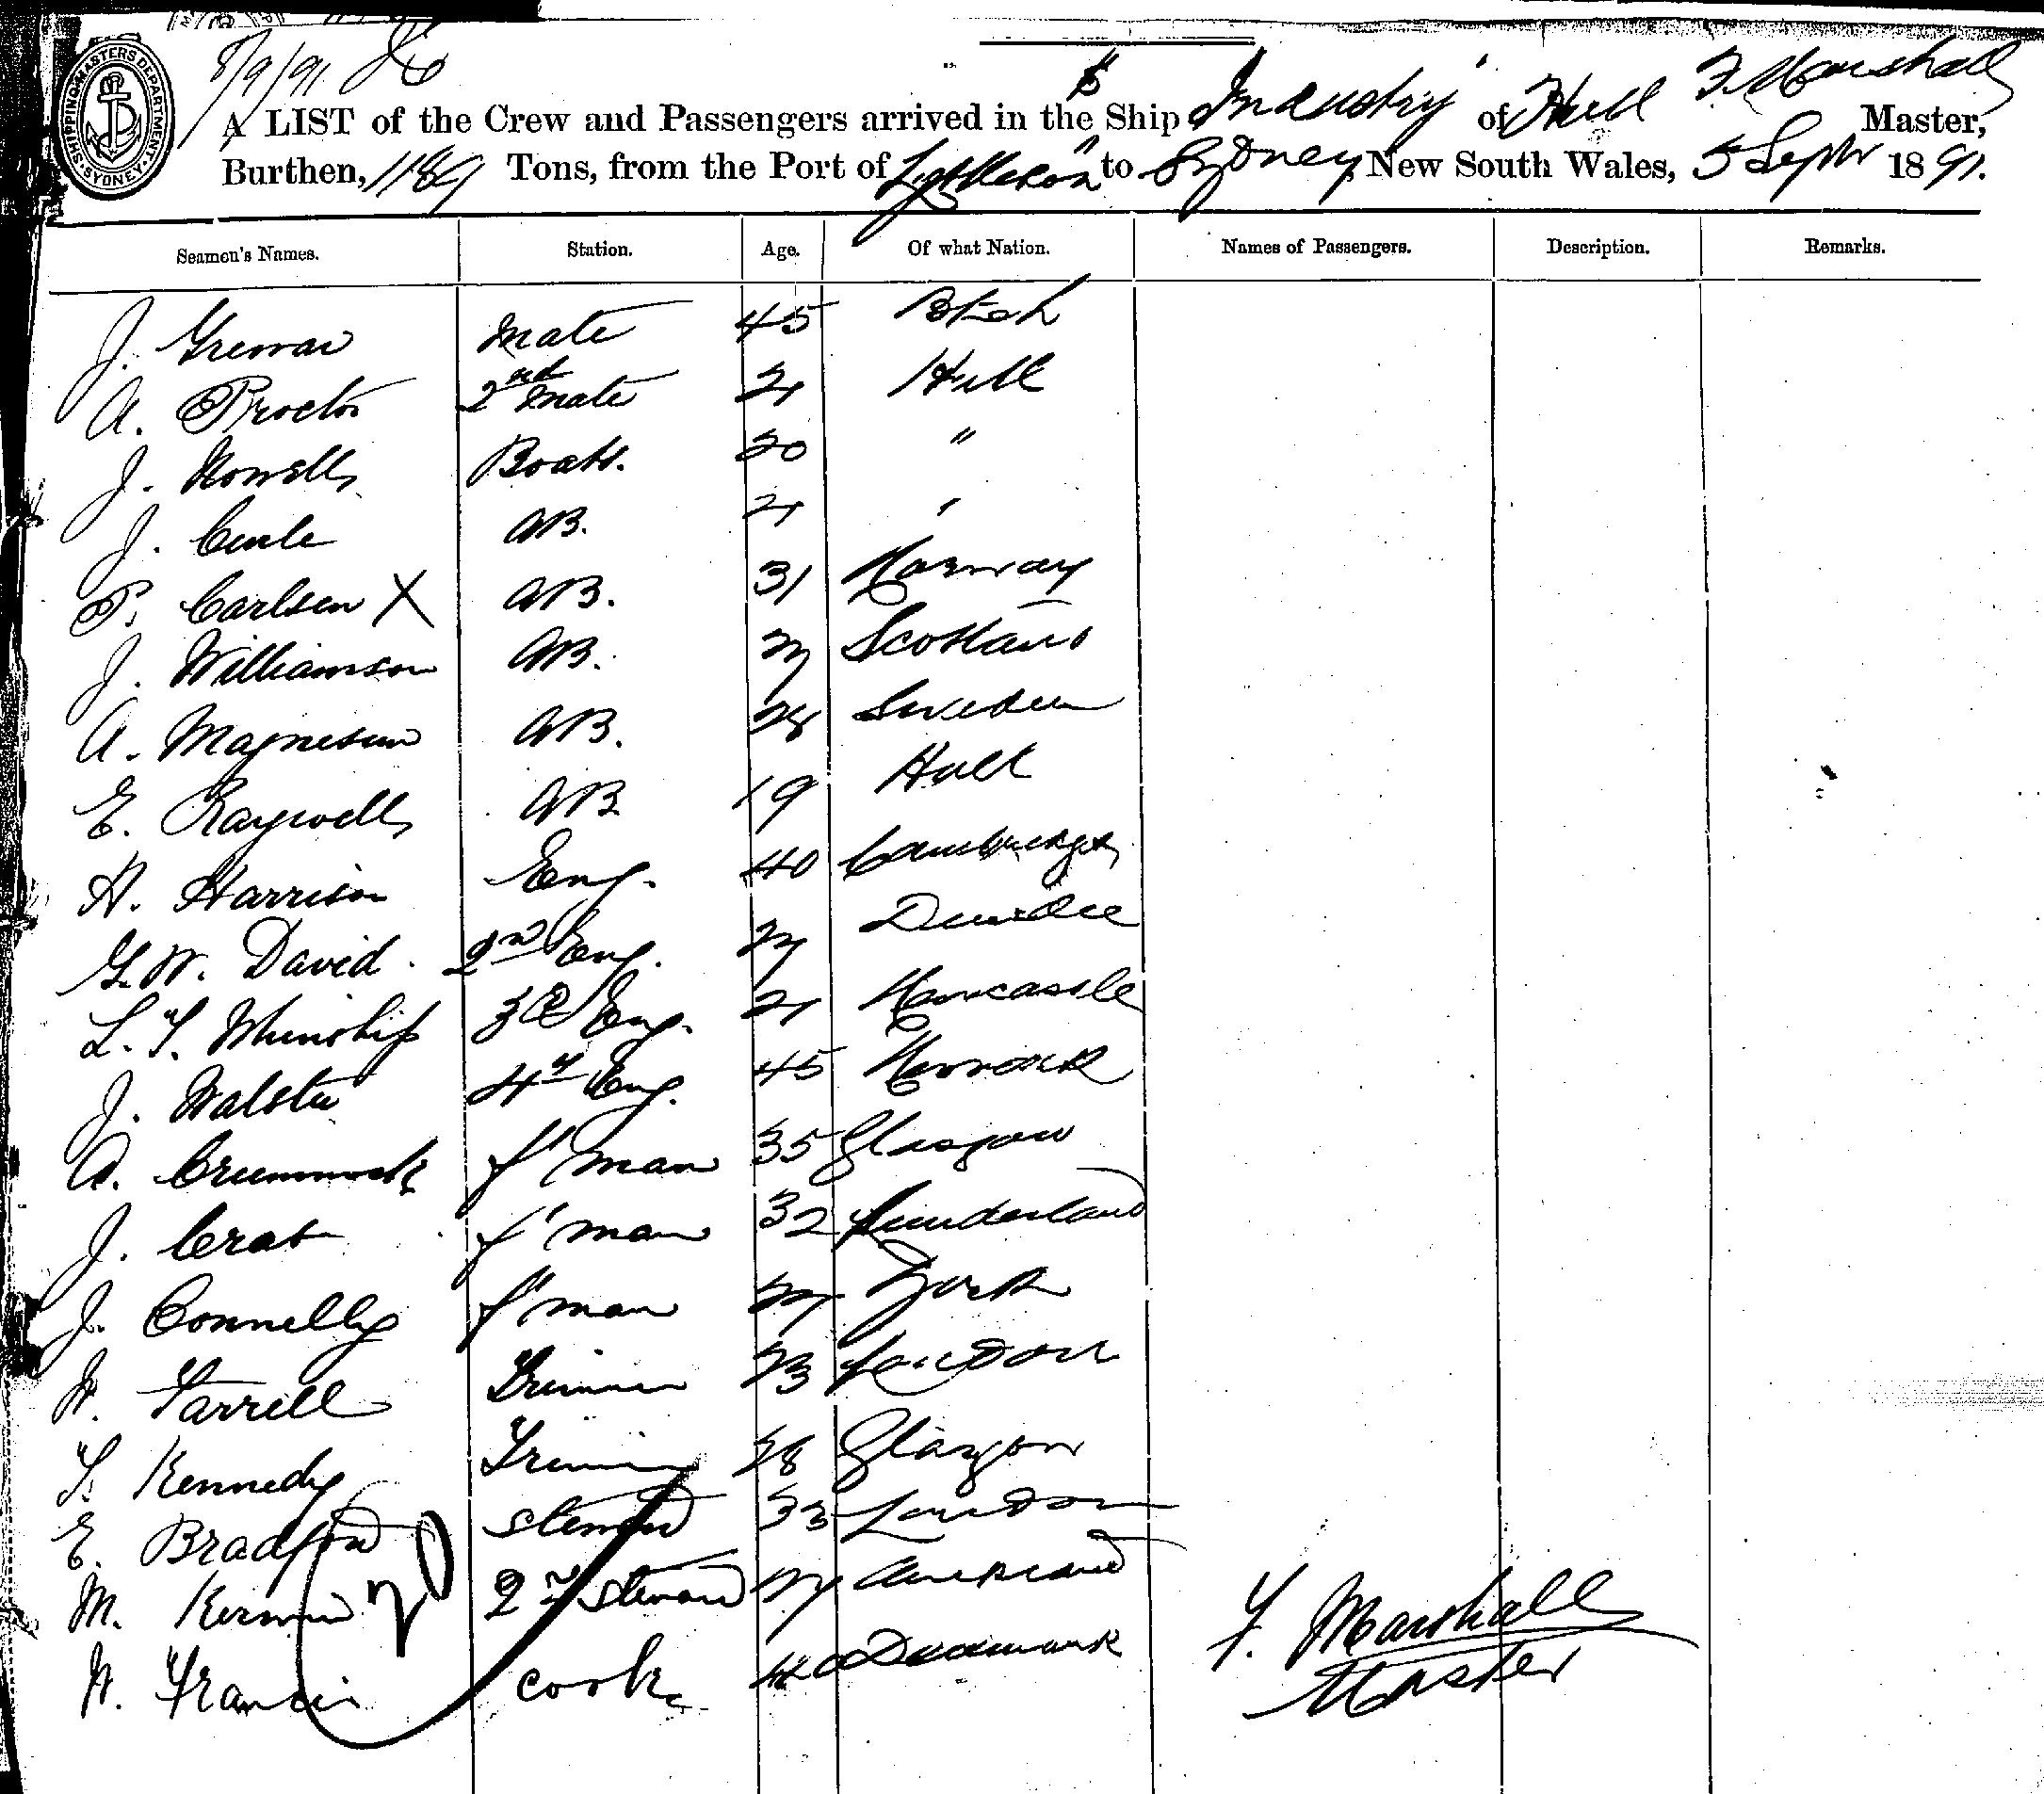 8/9/91
SHIPPING MASTERS DEPARTMENT SYDNEY
A LIST of the Crew and Passengers arrived in the Ship Industry of Hull F. Marshall Master,
Burthen, 1189 Tons, from the Port of Lyttleton to Sydney, New South Wales, 5 Septr 1891.
Seamen's Names. Station. Age. Of what Nation. Names of Passengers. Description. Remarks.
J. Mate 45
A. Proctor 2nd Mate 21 Hull
J. Nowells Boats. 20 "
J. AB. 21 "
P. Carlsen X AB. 31 Norway
J. Williamson AB. 27 Scotland
A. Magnesun AB. 28 Sweden
E. Raywells AB 19 Hull
H. Harrison Eng. 40
G. W. David. 2nd Eng. 27 Dundee
L. T. 3rd Eng. 21 Newcastle
J. 4th Eng. 45
A. f'man 35 Glasgow
J. f'man 32 Sunderland
J. Connelly f'man 27 York
W. Farrell Trimmer 23 London
T. Kennedy Trimmer 28 Glasgow
E. Bradford Steward 33 London
M. 20 2nd Steward 27 Auckland
W. Francis Cook Denmark
F. Marshall
Master